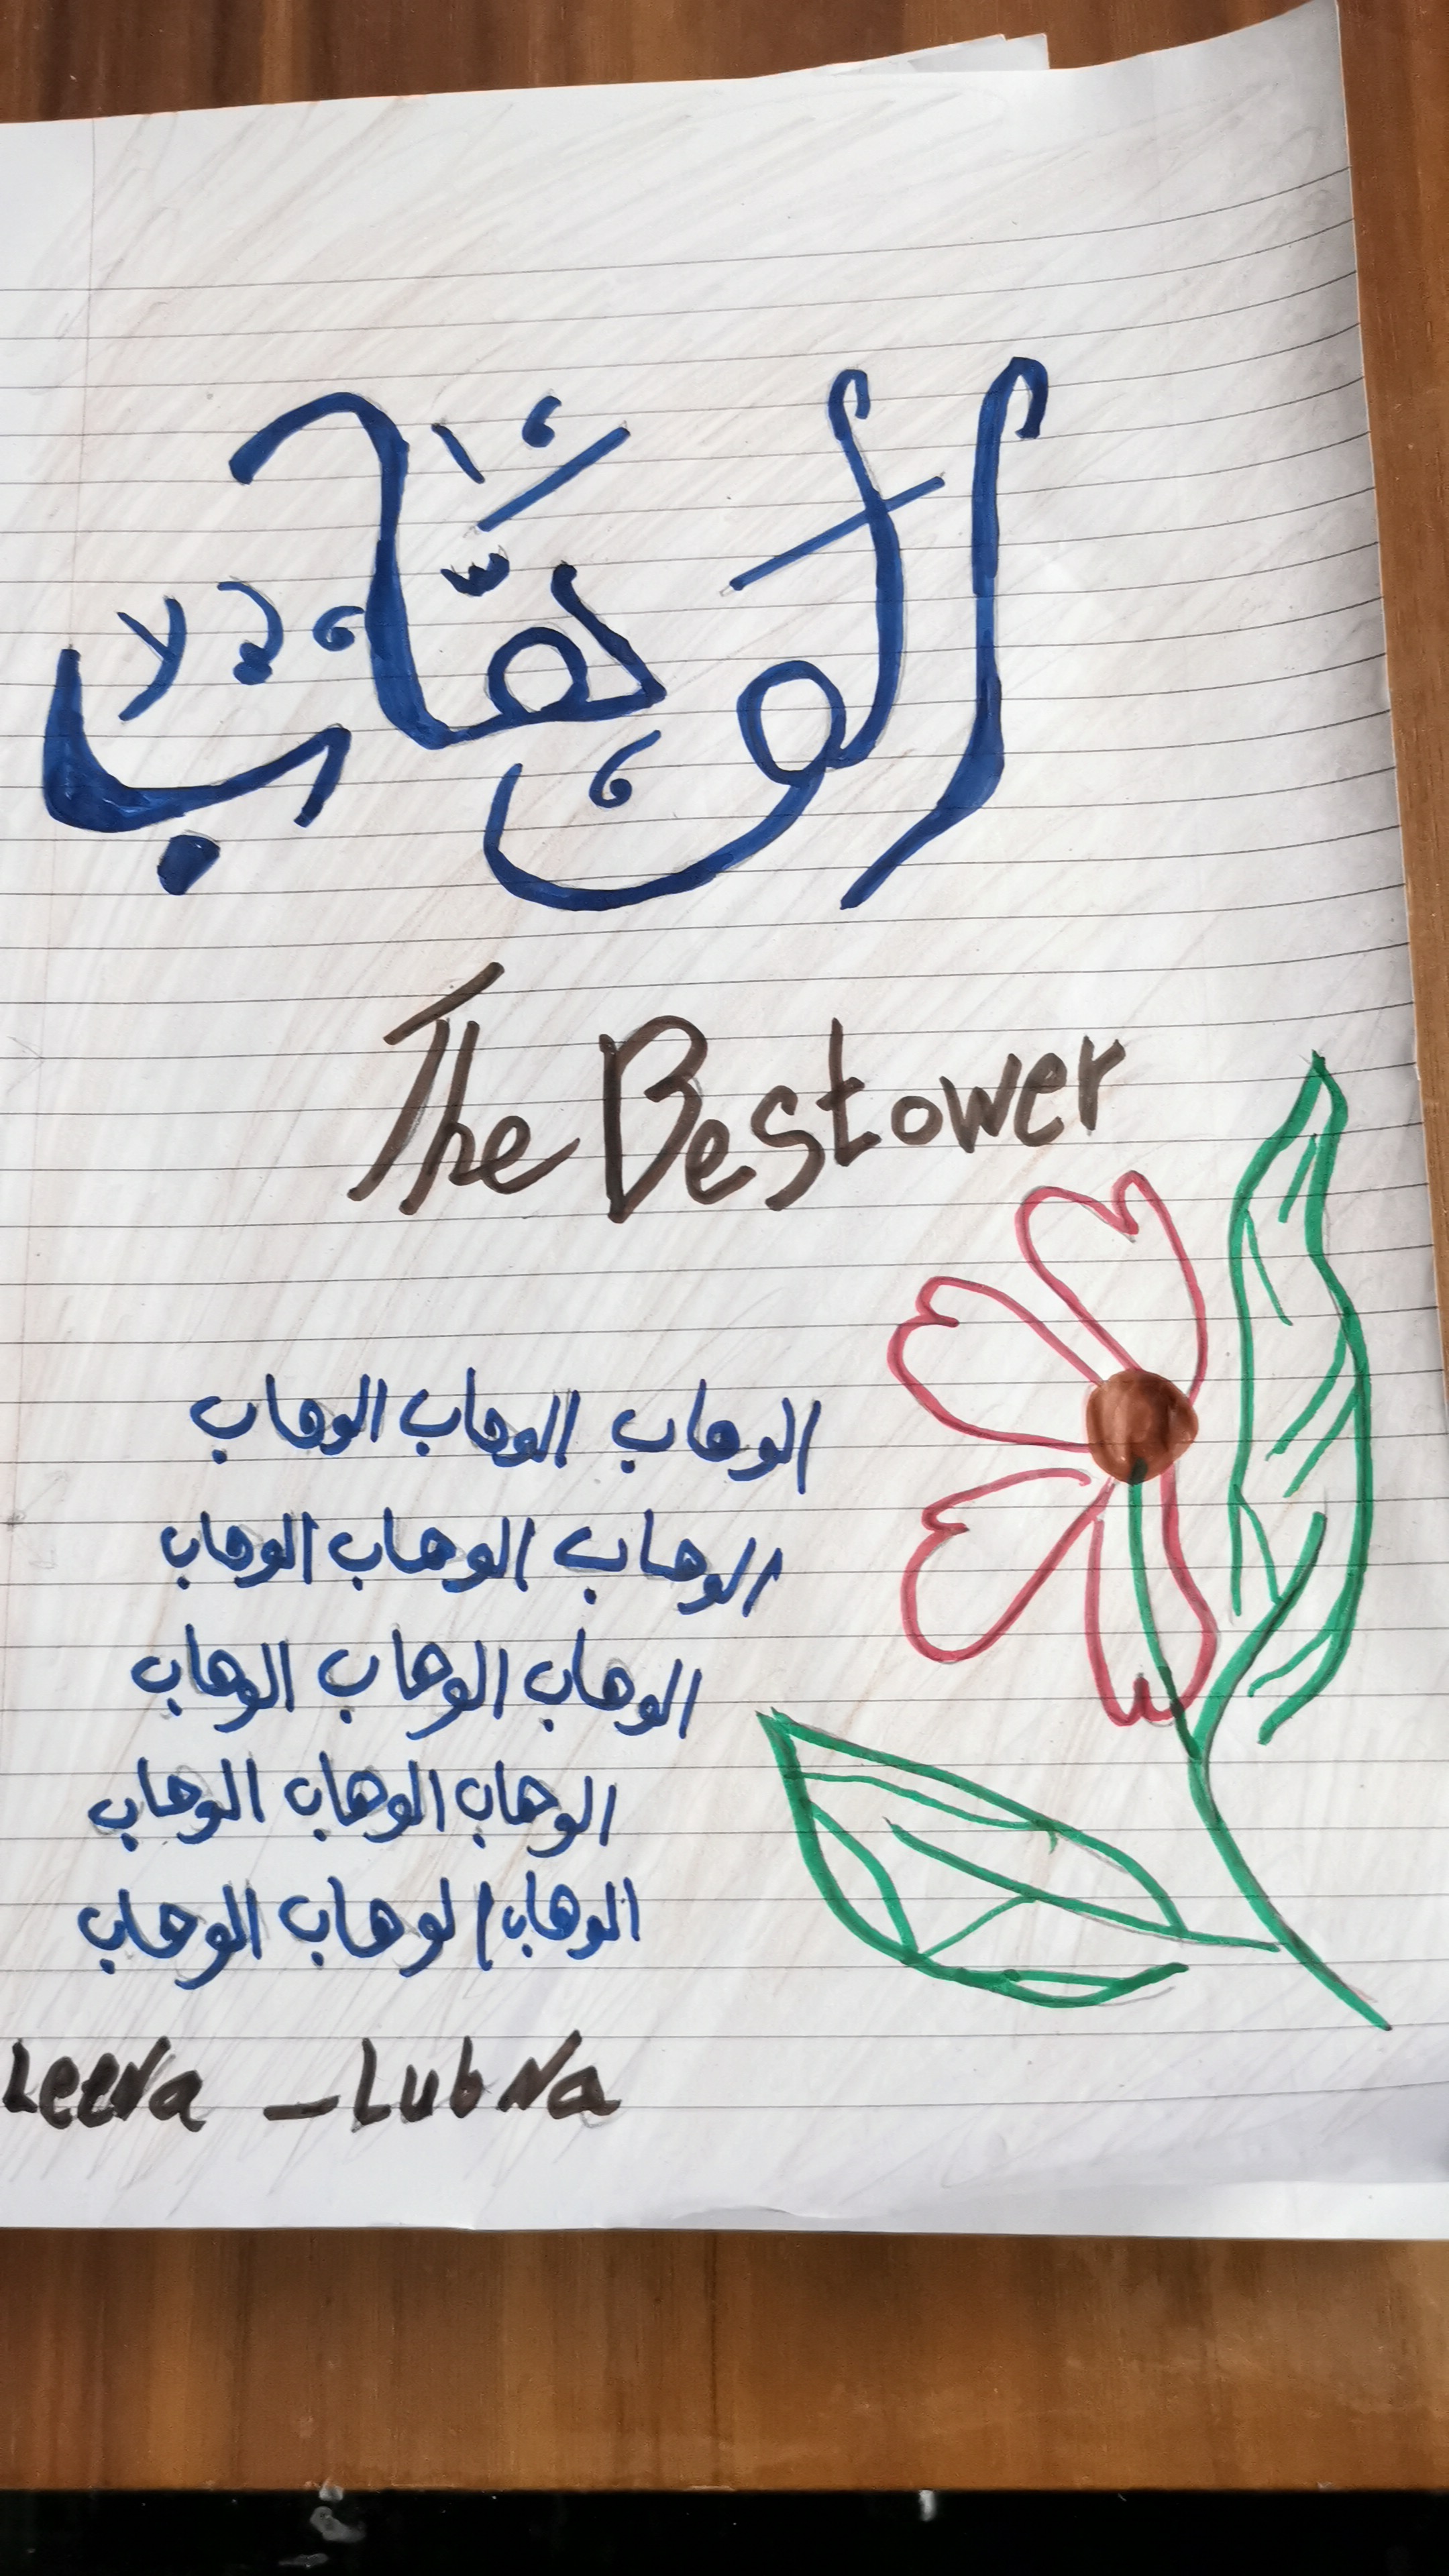 الوهّاب
The Bestower
الوهاب الوهاب الوهاب
الوهاب الوهاب الوهاب
الوهاب الوهاب الوهاب
الوهاب الوهاب الوهاب
الوهاب الوهاب الوهاب
Leena - LubNa